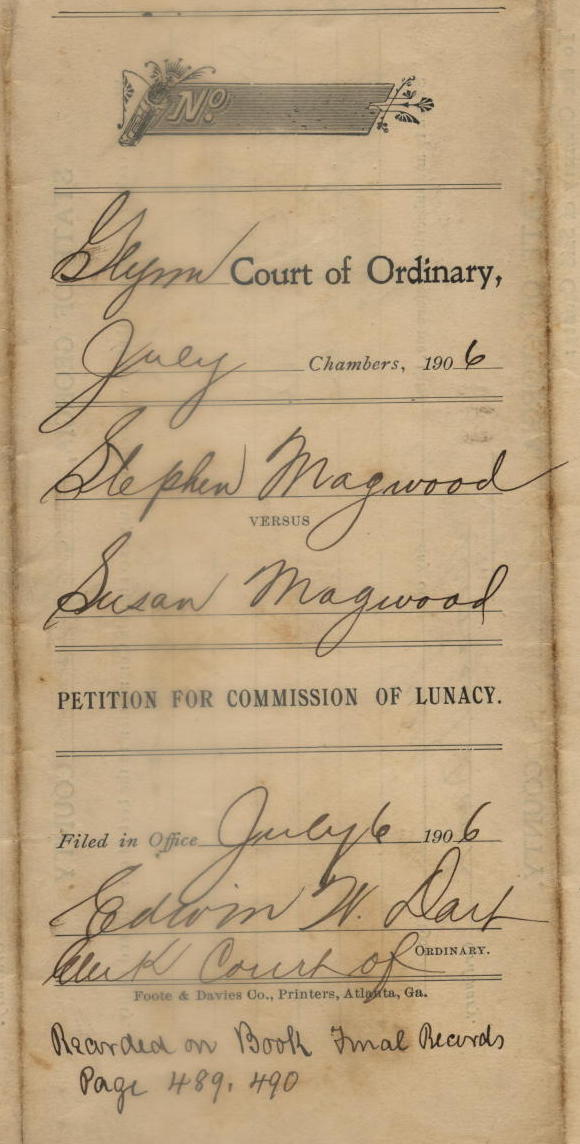 No.
Glynn Court of Ordinary,
July Chambers, 1906
Stephen Magwood
VERSUS
Susan Magwood
PETITION FOR COMMISSION OF LUNACY.
Filed in Office July 6 1906
Edwin W. Dart
Clerk Court of ORDINARY.
Foote & Davies Co., Printers, Atlanta, Ga.
Recorded on Book Final Records
Page 489, 490